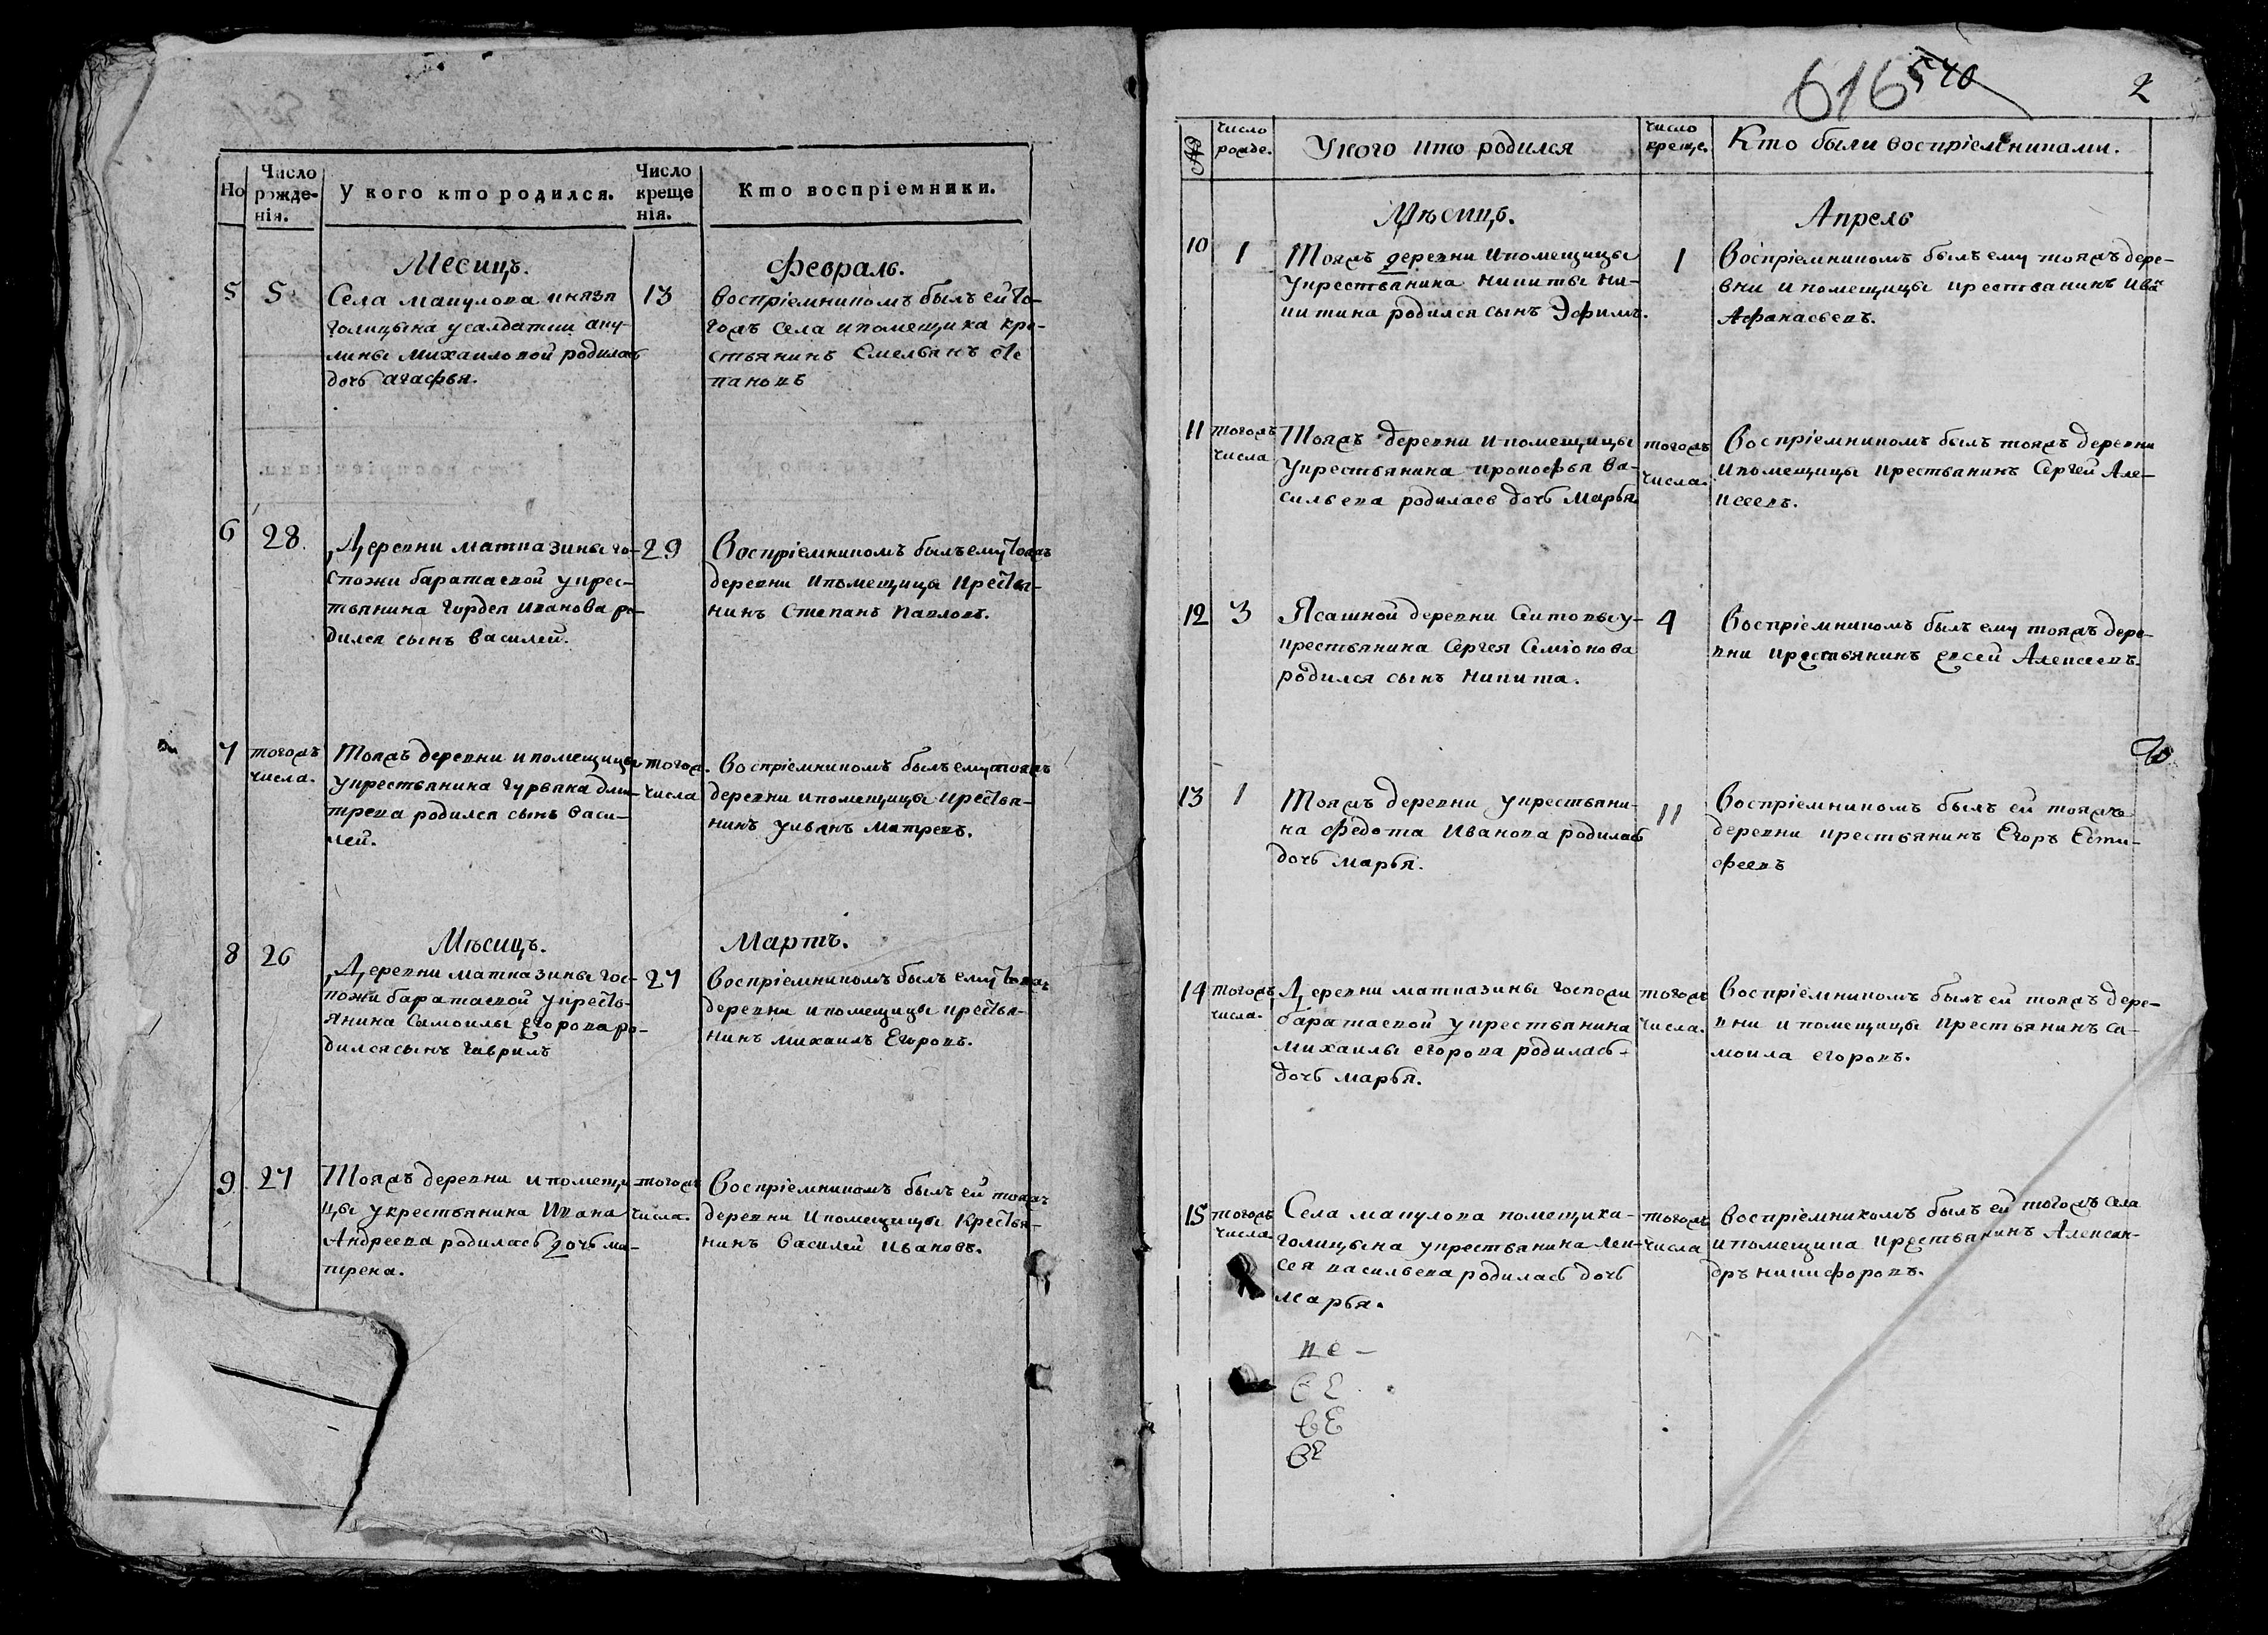 Но
Число рожде-нія.
У кого кто родился.
Число креще нія.
Кто воспріемники.
Месицъ.
Февраль.
5
5
Села манулова князя
голицына усалдатки аку-
лины Михаиловой родилась
дочь агафья.
13
Воспріемникомъ былъ ей то-
гожъ села ипомещика кре-
стьянинъ Емельянъ Сте
пановъ
6
28.
Деревни матказины го-
спожи баратаевой укрес-
тьянина Гордея Иванова ро-
дился сынъ василей.
29
Воспріемникомъ былъ ему тояжъ
деревни ипомещицы крестья-
нинъ Степанъ Павловъ.
7
тогожъ
числа.
Тояжъ деревни ипомещицы
укрестьянина Гурьяна дми-
трева родился сынъ васи-
лей.
тогож.
числа
Воспріемникомъ былъ ему тояжъ
деревни ипомещицы крестья-
нинъ ульянъ Матревъ.
Мѣсицъ.
Мартъ.
8
26
Деревни матказины гос-
пожи баратаевой укресть-
янина Самоилы Егорова ро-
дился сынъ гаврилъ
27
Воспріемникомъ былъ ему тояжъ
деревни ипомещицы крестья-
нинъ михаилъ Егоровъ.
9
27
Тояжъ деревни ипомещи-
цы укрестьянина Ивана
Андреева родилась дочь ма-
трена.
тогожъ
числа.
Воспріемникомъ былъ ей тояжъ
деревни Ипомещицы Крестья-
нинъ василей Ивановъ.
616
540
2
№
число рожде.
Укого кто родился
число креще.
Кто были воспріемниками.
Мѣсицъ.
Апрель
10
1
Тояжъ деревни Ипомещицы
укрестьянина никиты ни-
китина родился сынъ Эфимъ.
1
Воспріемникомъ былъ ему тояжъ дере-
вни ипомещицы крестьянинъ ивā
Афанасьевъ.
11
тогожъ
числа
Тояжъ деревни ипомещицы
укрестьянина прокофья ва-
сильева родилась дочь Марья
тогожъ
числа.
Воспріемникомъ былъ тояжъ деревни
ипомещицы крестьянинъ Сергей Але-
ксеевъ.
12
3
Ясашной деревни Ситовы у-
крестьянина Сергея Семіонова
родился сынъ никита.
4
Воспріемникомъ былъ ему тояжъ дере-
вни крестьянинъ евсей Алексеевъ.
13
1
Тояжъ деревни укрестьяни-
на Федота Иванова родилась
дочь марья.
11
Воспріемникомъ былъ ей тояжъ
деревни крестьянинъ Егоръ Ести-
феевъ
14
тогожъ
числа.
Деревни матказины госпожи
баратаевой укрестьянина
Михаилы егорова родилась-
дочь марья.
тогожъ
числа.
Воспріемникомъ былъ ей тояжъ дере-
вни ипомещицы крестьянинъ са-
моила егоровъ.
15
тогожъ
числа
Села манулова помещика-
голицына укрестьянина Лек-
сея васильева родилась дочь
марья.
тогожъ
числа
Воспріемникомъ былъ ей тогожъ села
ипомещика крестьянинъ Алексан-
дръ никифоровъ.